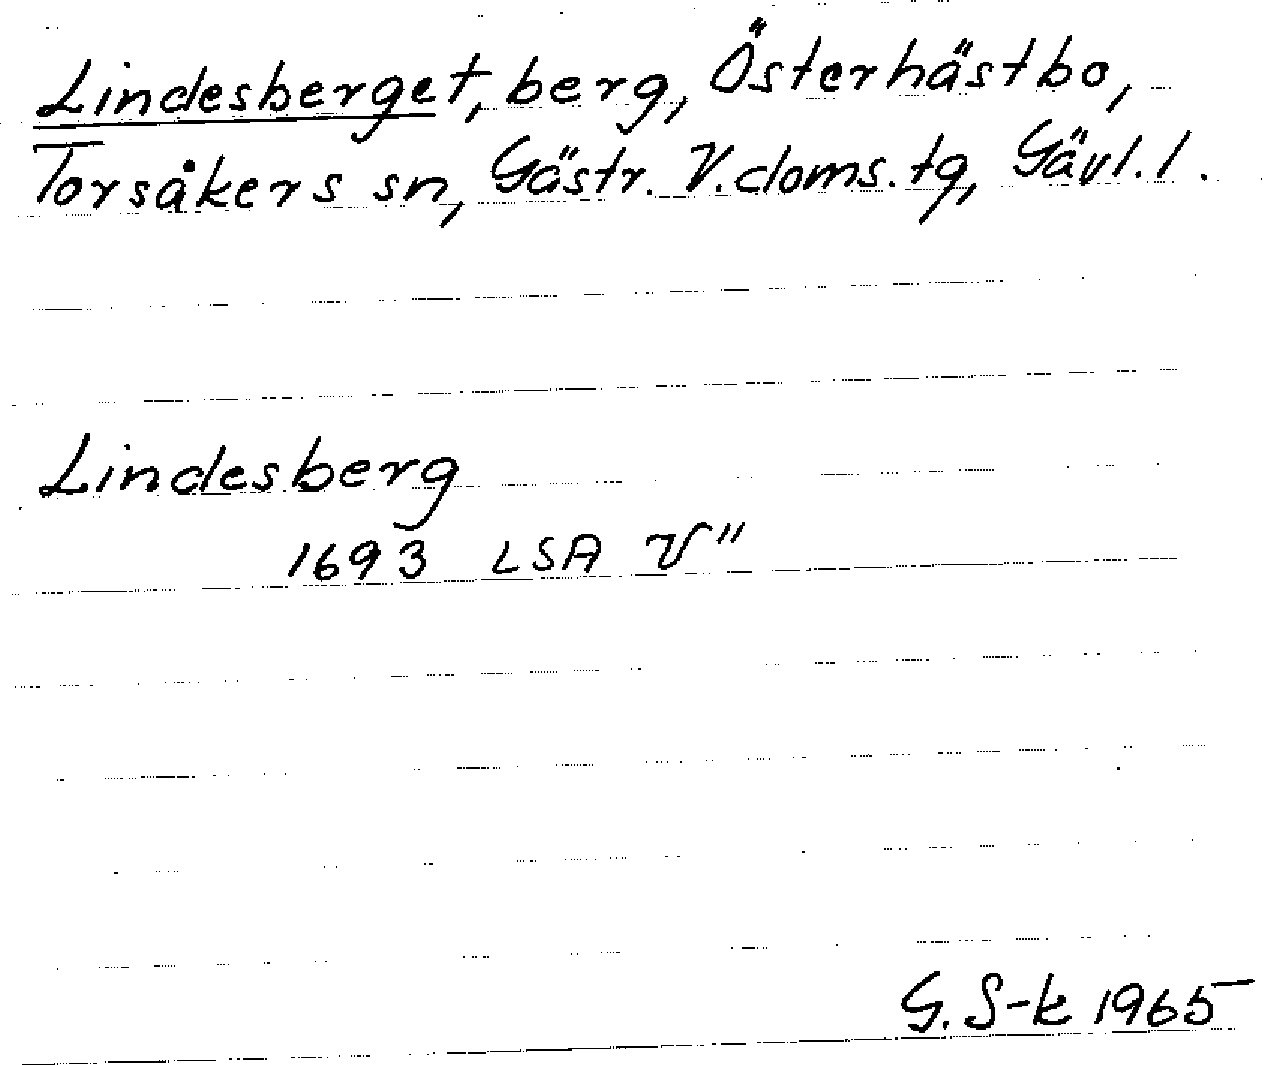 Lindesberget, berg, Österhästbo,
Torsåkers sn, Gästr. V. doms. tg, Gävl. l.
Lindesberg
1693 LSA V"
G. S-k 1965